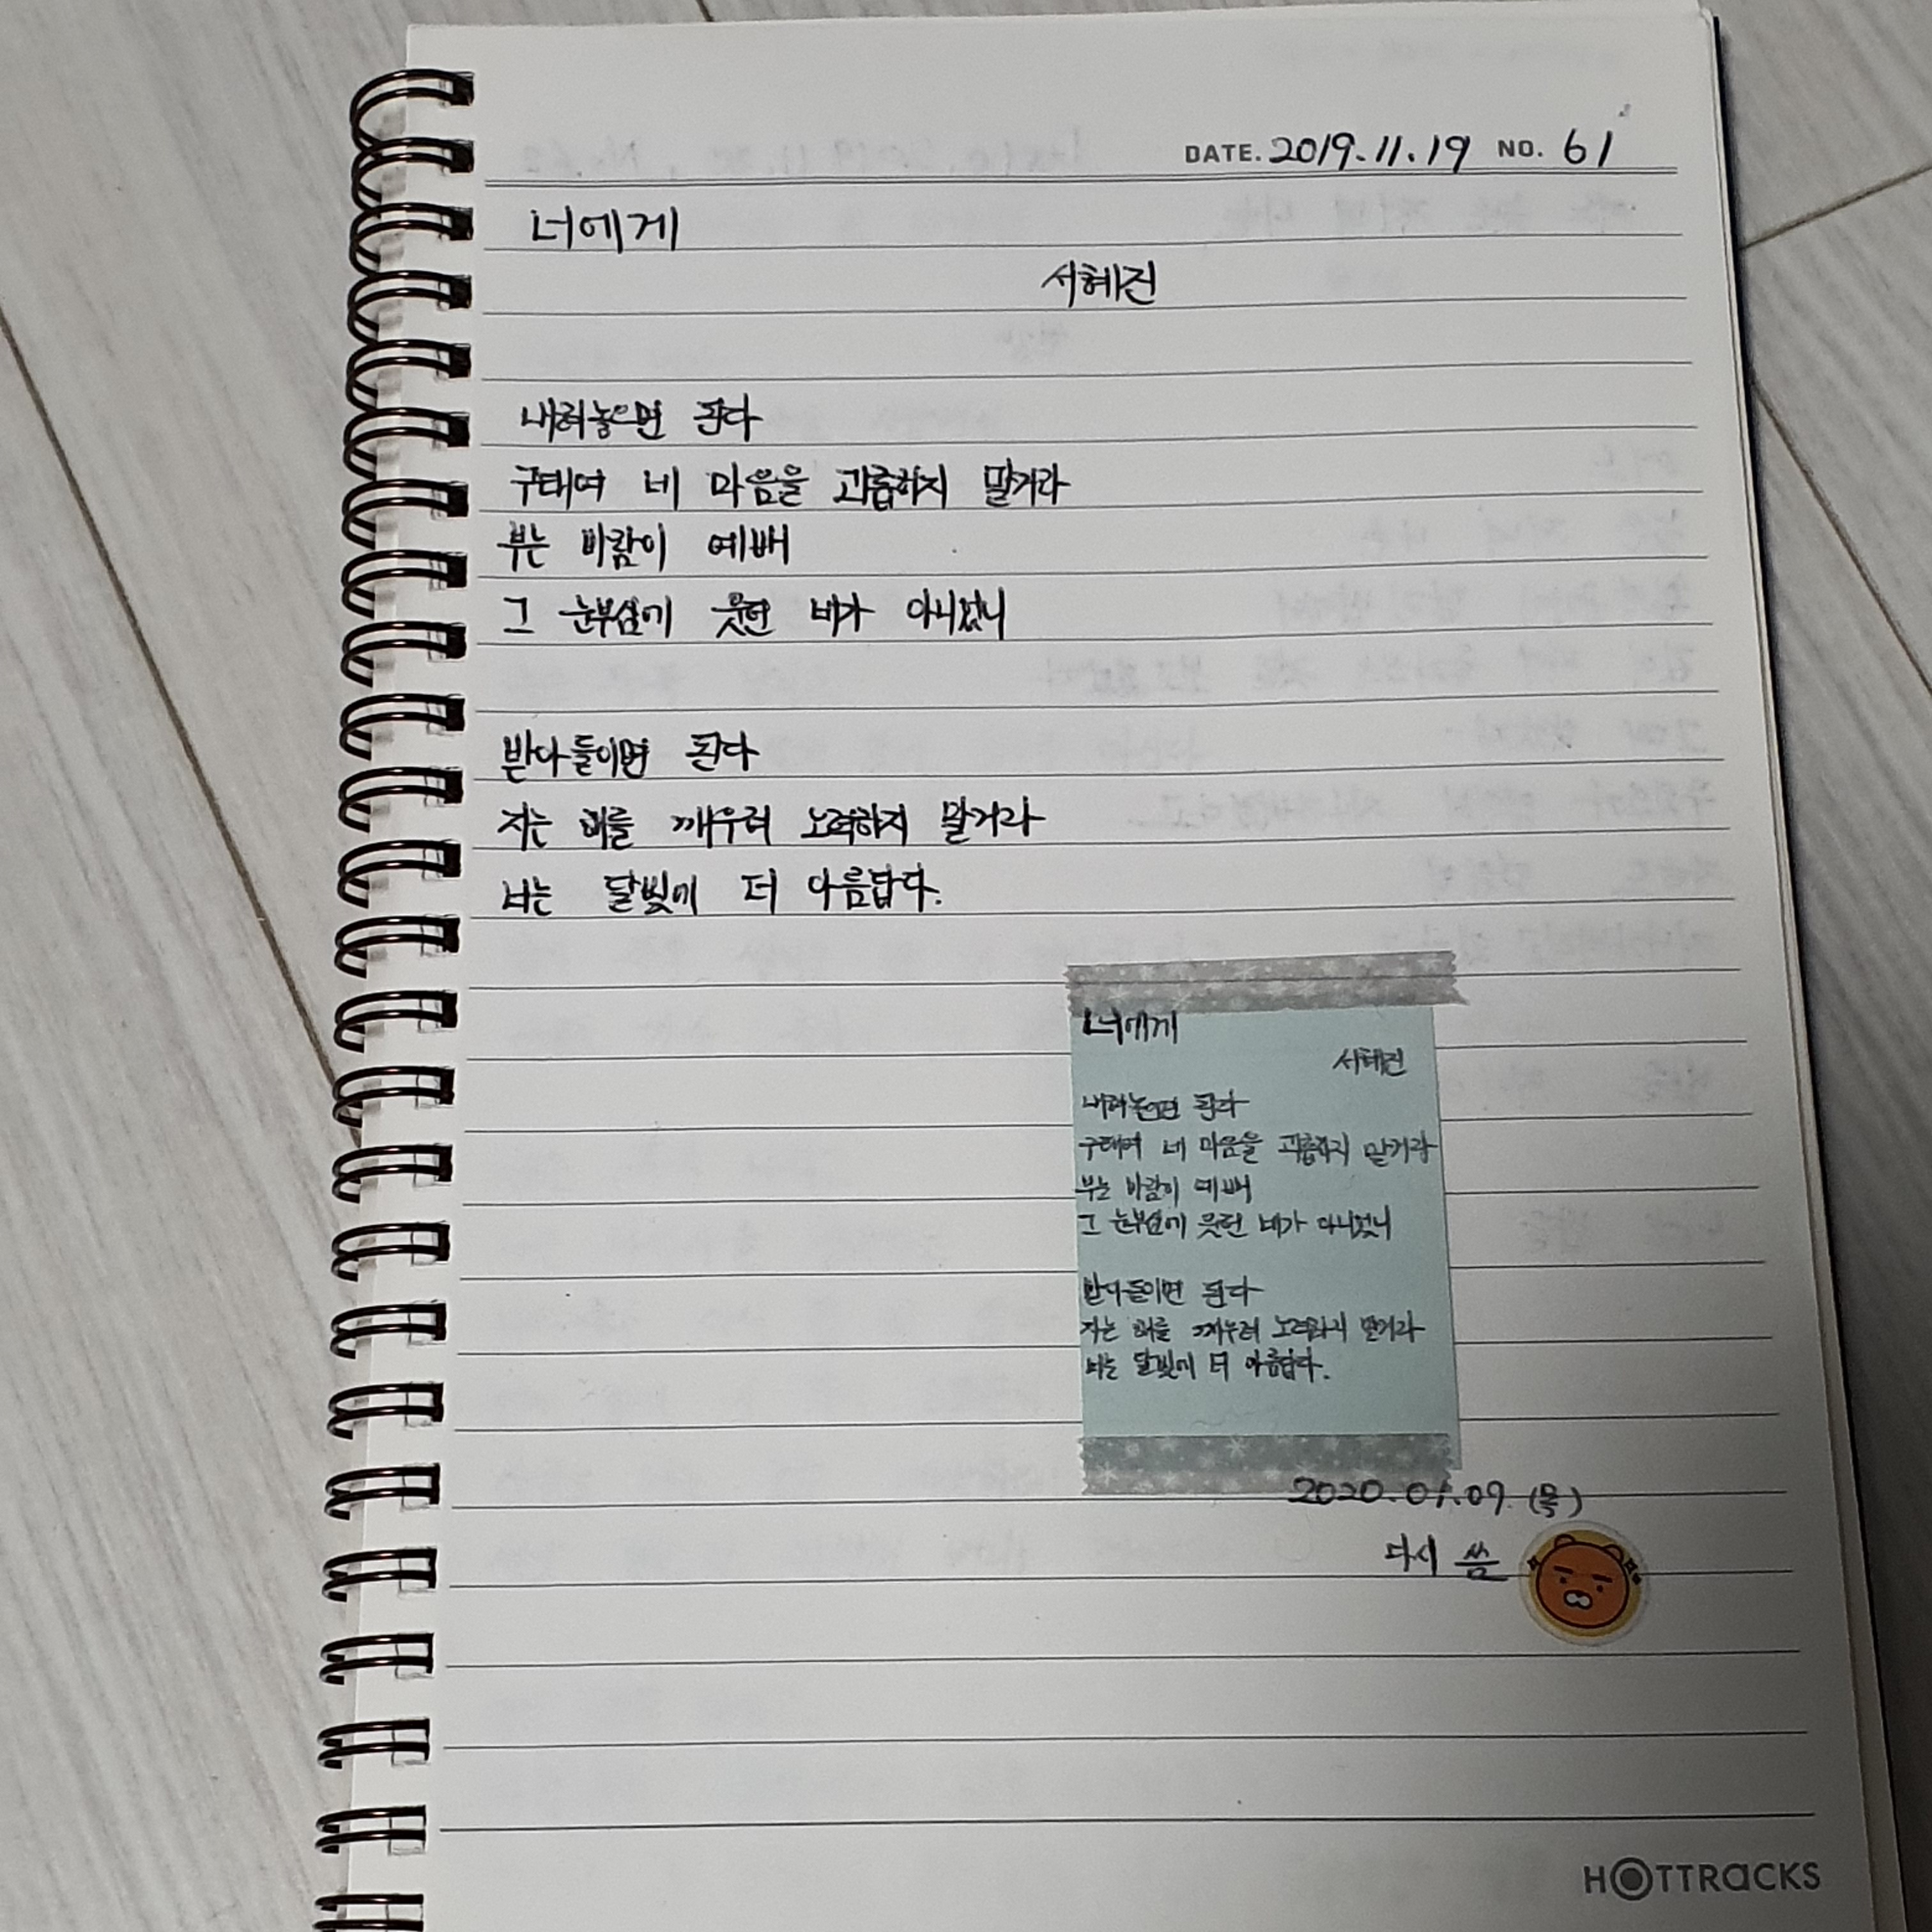 DATE. 2019.11.19 NO. 61
너에게
서혜진
내려놓으면 된다
구태여 네 마음을 괴롭히지 말거라
부는 바람이 예뻐
그 눈부심에 웃던 네가 아니었니
받아들이면 된다
지는 해를 깨우려 노력하지 말거라
너는 달빛에 더 아름답다.
너에게
서혜진
내려놓으면 된다
구태여 네 마음을 괴롭히지 말거라
부는 바람이 예뻐
그 눈부심에 웃던 네가 아니었니
받아들이면 된다
지는 해를 깨우려 노력하지 말거라
너는 달빛에 더 아름답다.
2020.01.09 (목)
다시 씀
HOTTRACKS